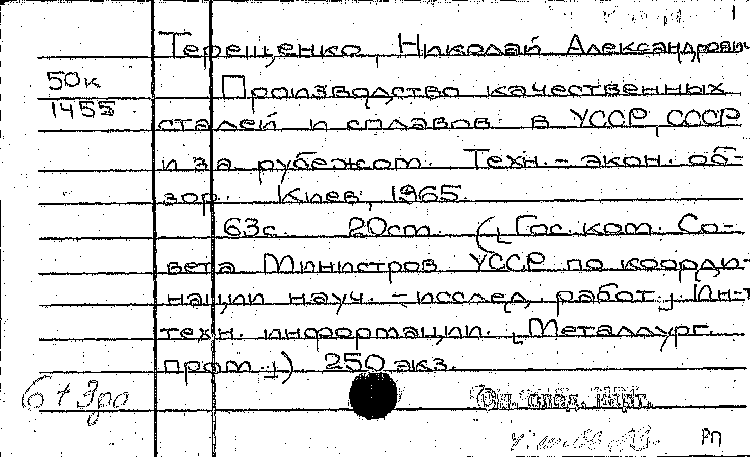 Терещенко, Николай Александрович
50к
1455
Производство качественных
сталей и сплавов в УССР, СССР
и за рубежом. Техн.-экон. об-
зор. Киев, 1965.
63с. 20см. (Гос. ком. Со-
вета Министров УССР по коорди-
нации науч.-исслед. работ. Ин-т
техн. информации. Металлург.
пром.) 250 экз.
РП